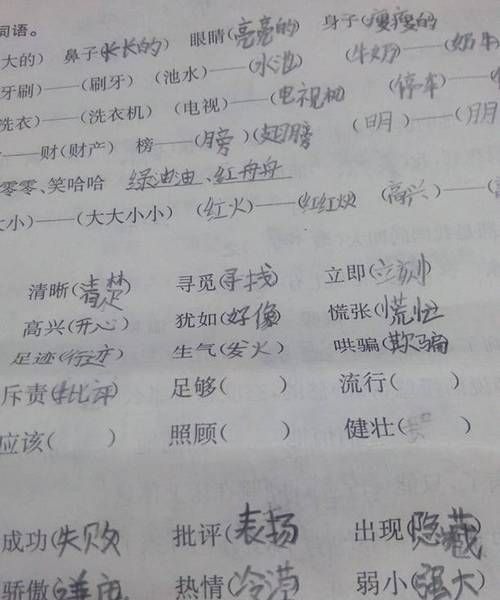 词语。
大的) 鼻子(长长的) 眼睛(亮亮的) 身子(瘦瘦的
牙刷)——(刷牙) (池水)——(水池) (牛奶)——(奶牛
洗衣)——(洗衣机) (电视)——(电视机) (停车)——(
——财(财产) 榜——(膀)(翅膀) (日月)——(
零零、笑哈哈 绿油油、红丹丹
大小)——(大大小小) (红火)——(红红火 (高兴)——(
清晰(清楚) 寻觅(寻找) 立即(立刻)
高兴(开心) 犹如(好像) 慌张(慌忙
足迹(行迹) 生气(发火) 哄骗(欺骗
斥责(批评) 足够( ) 流行( )
应该( ) 照顾( ) 健壮( )
成功(失败 批评(表扬 出现(隐藏
骄傲( 热情(冷漠 弱小(强大)